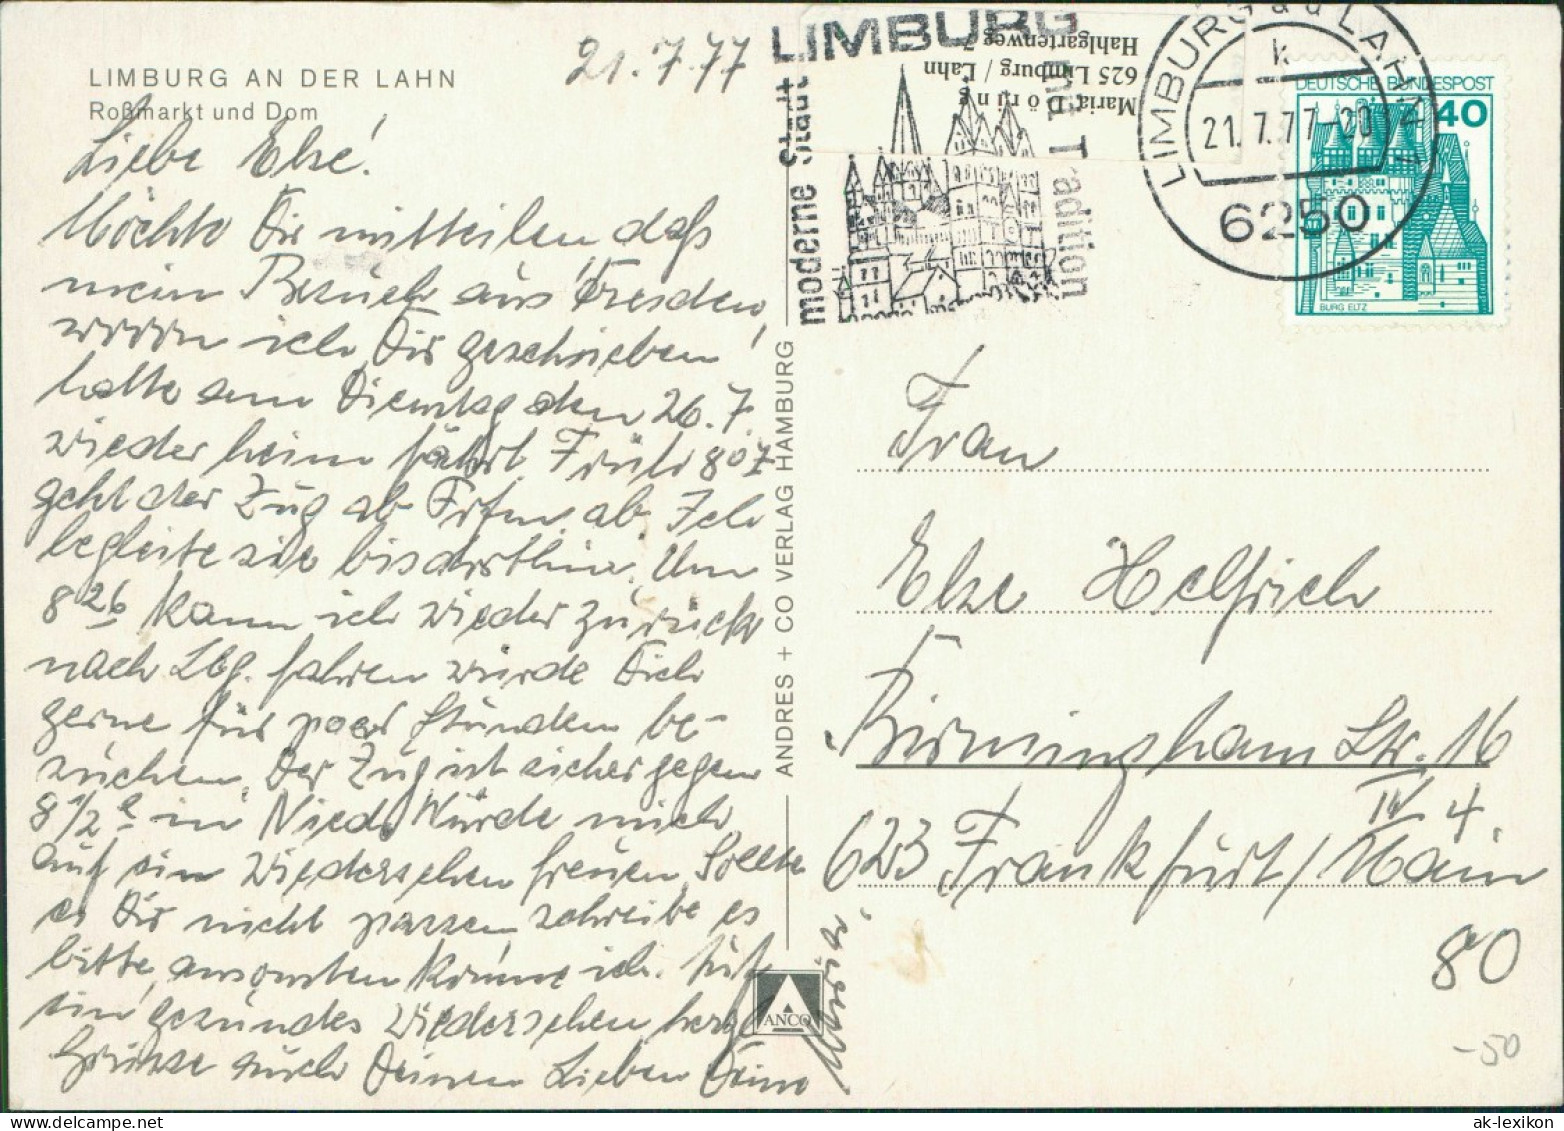 LIMBURG AN DER LAHN
Roßmarkt und Dom
21.7.77
Liebe Else!
Möchte Dir mitteilen daß
mein Besuch aus Dresden,
wovon ich Dir geschrieben!
hatte am Dienstag den 26.7.
wieder heim fährt Früh 8 07
geht der Zug ab Ffm. ab. Ich
begleite sie bis dorthin. Um
8 26 kann ich wieder zurück
nach Lbg. fahren würde Dich
gerne für paar Stunden be-
suchen. Der Zug ist sicher gegen
8 1/2 in Nied. Würde mich
auf ein Wiedersehen freuen. Sollte
es Dir nicht passen schreibe es
bitte, ansonsten komme ich. Auf
ein gesundes Wiedersehen herzl.
Grüsse auch Deinen Lieben Deine
Maria
ANDRES + CO VERLAG HAMBURG
ANCO
LIMBURG
moderne Stadt
und Tradition
Maria Döring
625 Limburg / Lahn
Hahlgartenweg 7
LIMBURG a d LAHN 1
k
21.7.77-20
6250
DEUTSCHE BUNDESPOST
40
BURG ELTZ
Frau
Else Helfrich
Birmingham Str. 16
IV 4.
623 Frankfurt/Main
80
-50
www.ansichtskarten-lexikon.de
ak-lexikon